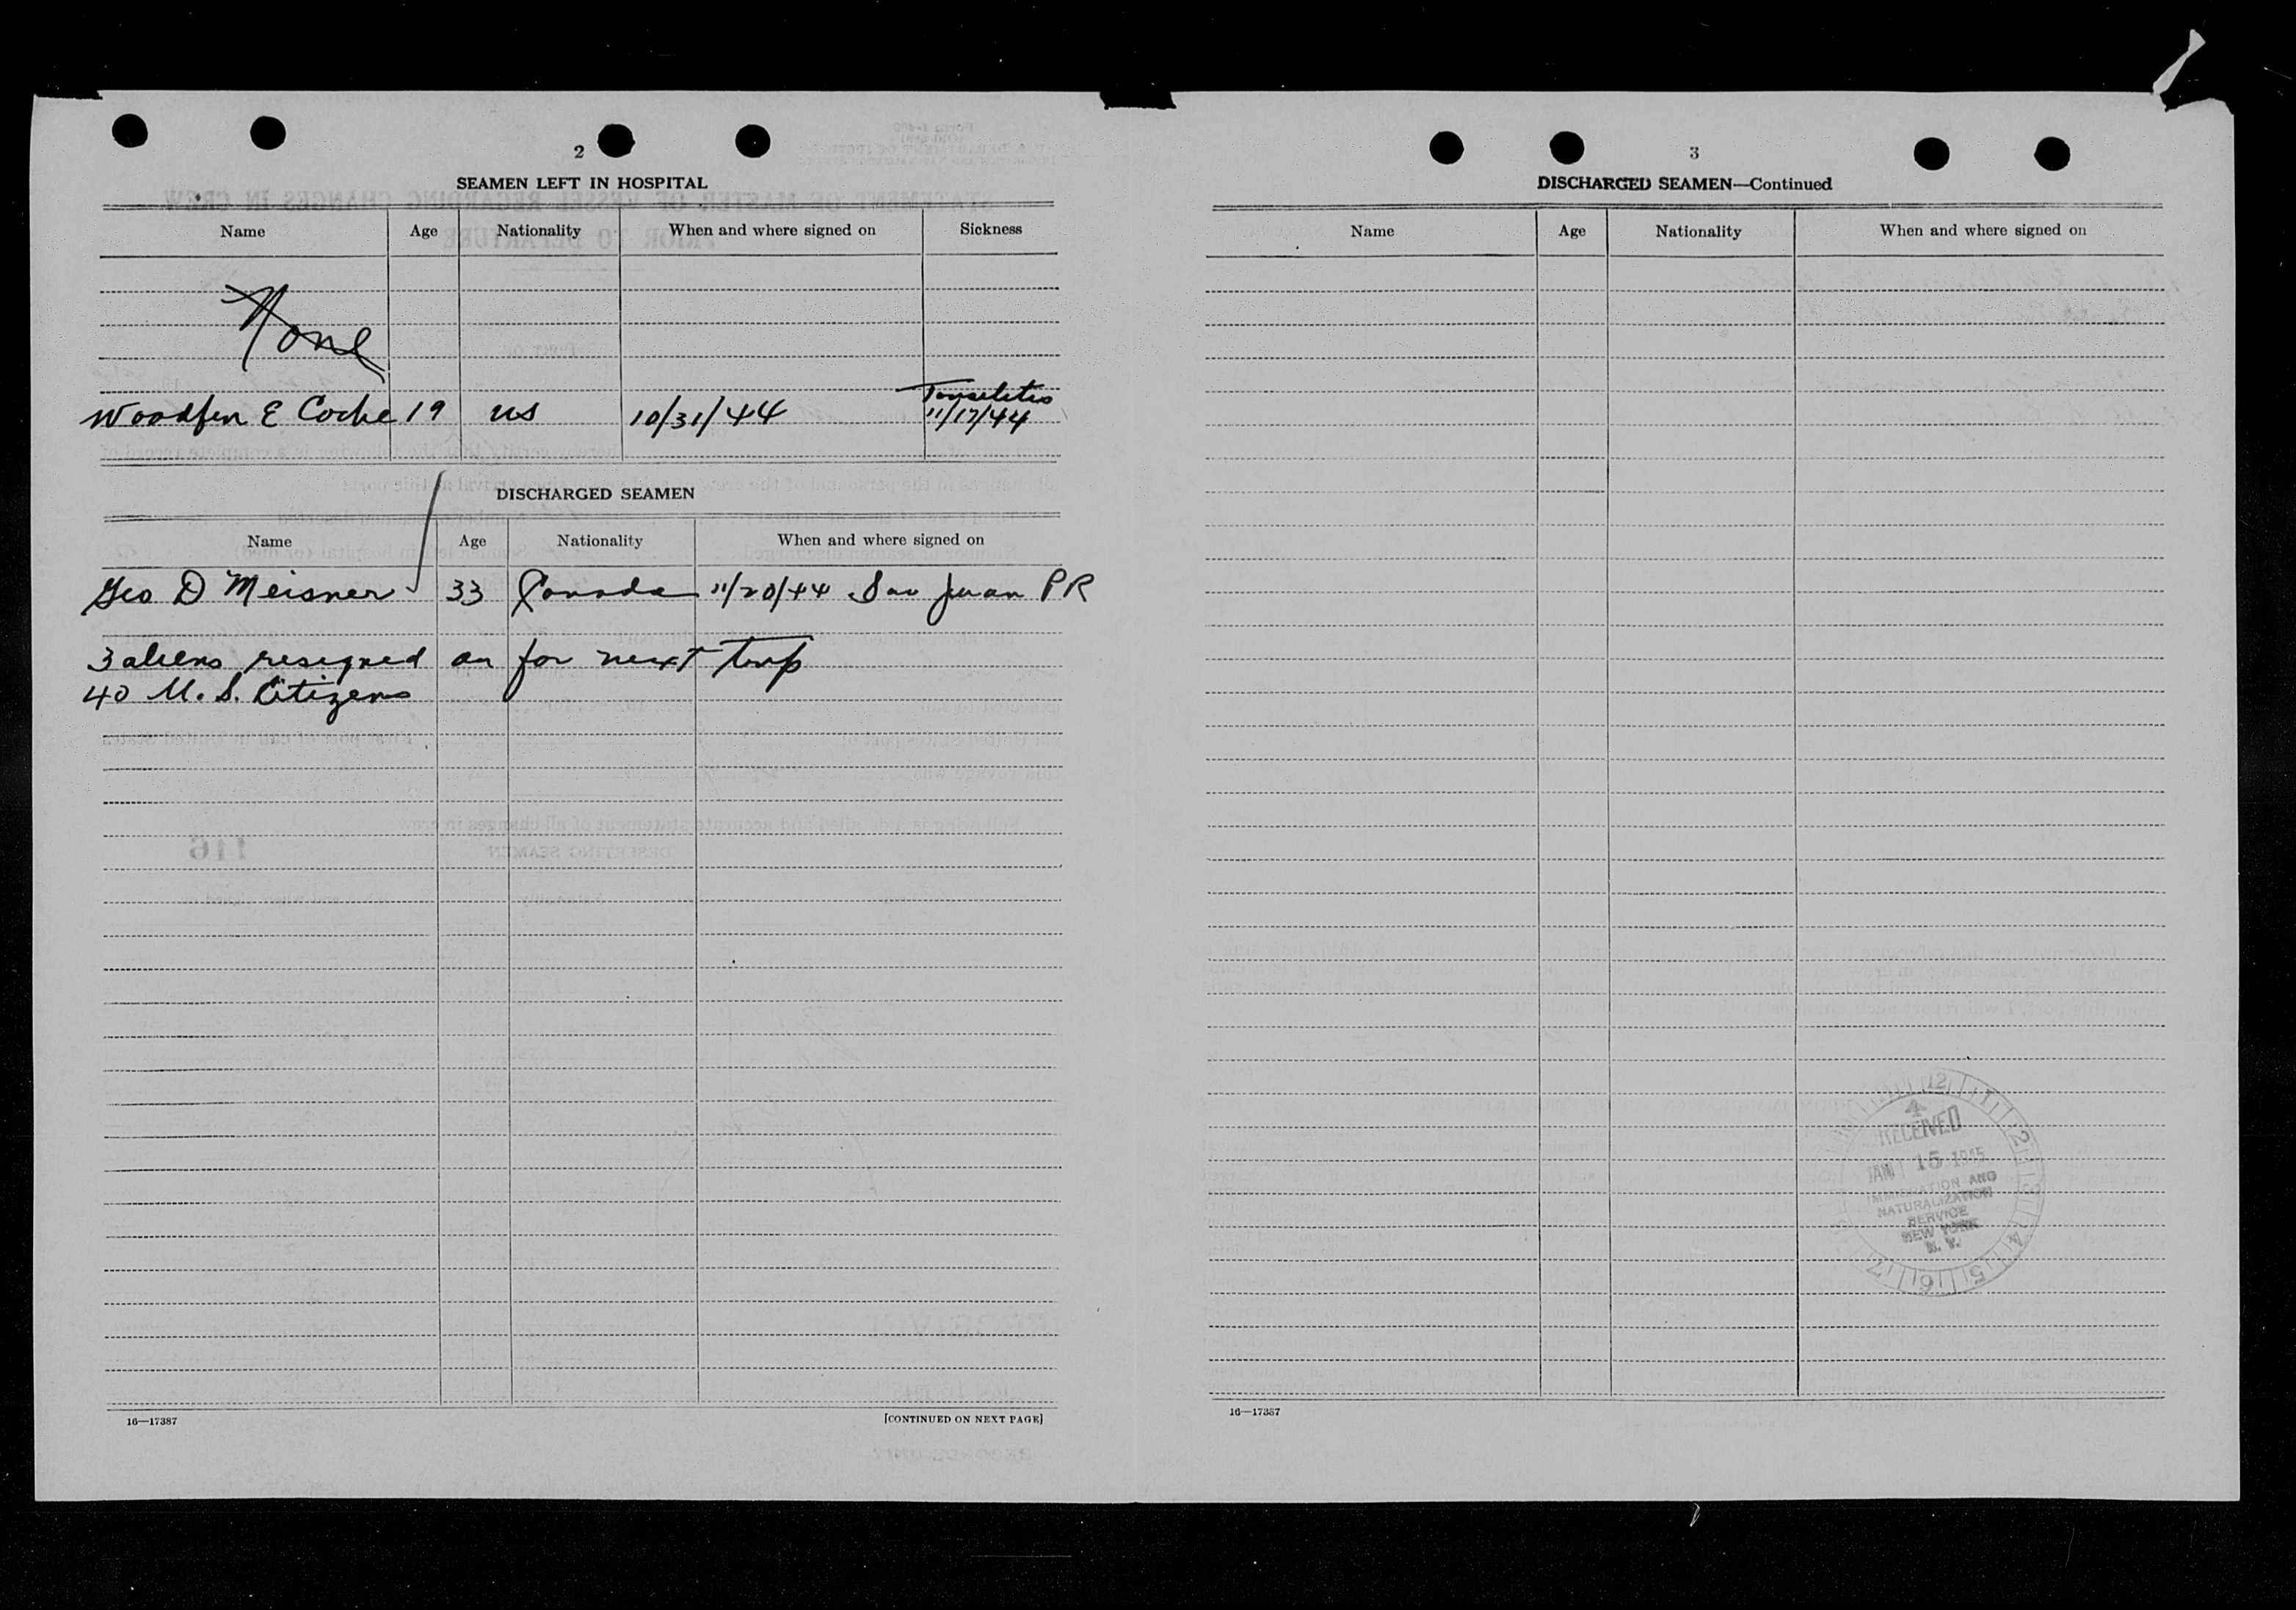 2
SEAMEN LEFT IN HOSPITAL
Name Age Nationality When and where signed on Sickness
None
Tonselites
Woodfen E Cocke 19 US 10/31/44 11/17/44
DISCHARGED SEAMEN
Name Age Nationality When and where signed on
Geo D Meisner 33 Canada 11/20/44 San Juan PR
3 aliens resigned on for next trip
40 U.S. Citizens
16—17387 [CONTINUED ON NEXT PAGE]
3
DISCHARGED SEAMEN—Continued
Name Age Nationality When and where signed on
12 1 2 3 4 5 6 7
4
RECEIVED
JAN 15 1945
IMMIGRATION AND
NATURALIZATION
SERVICE
NEW YORK
N. Y.
16—17387